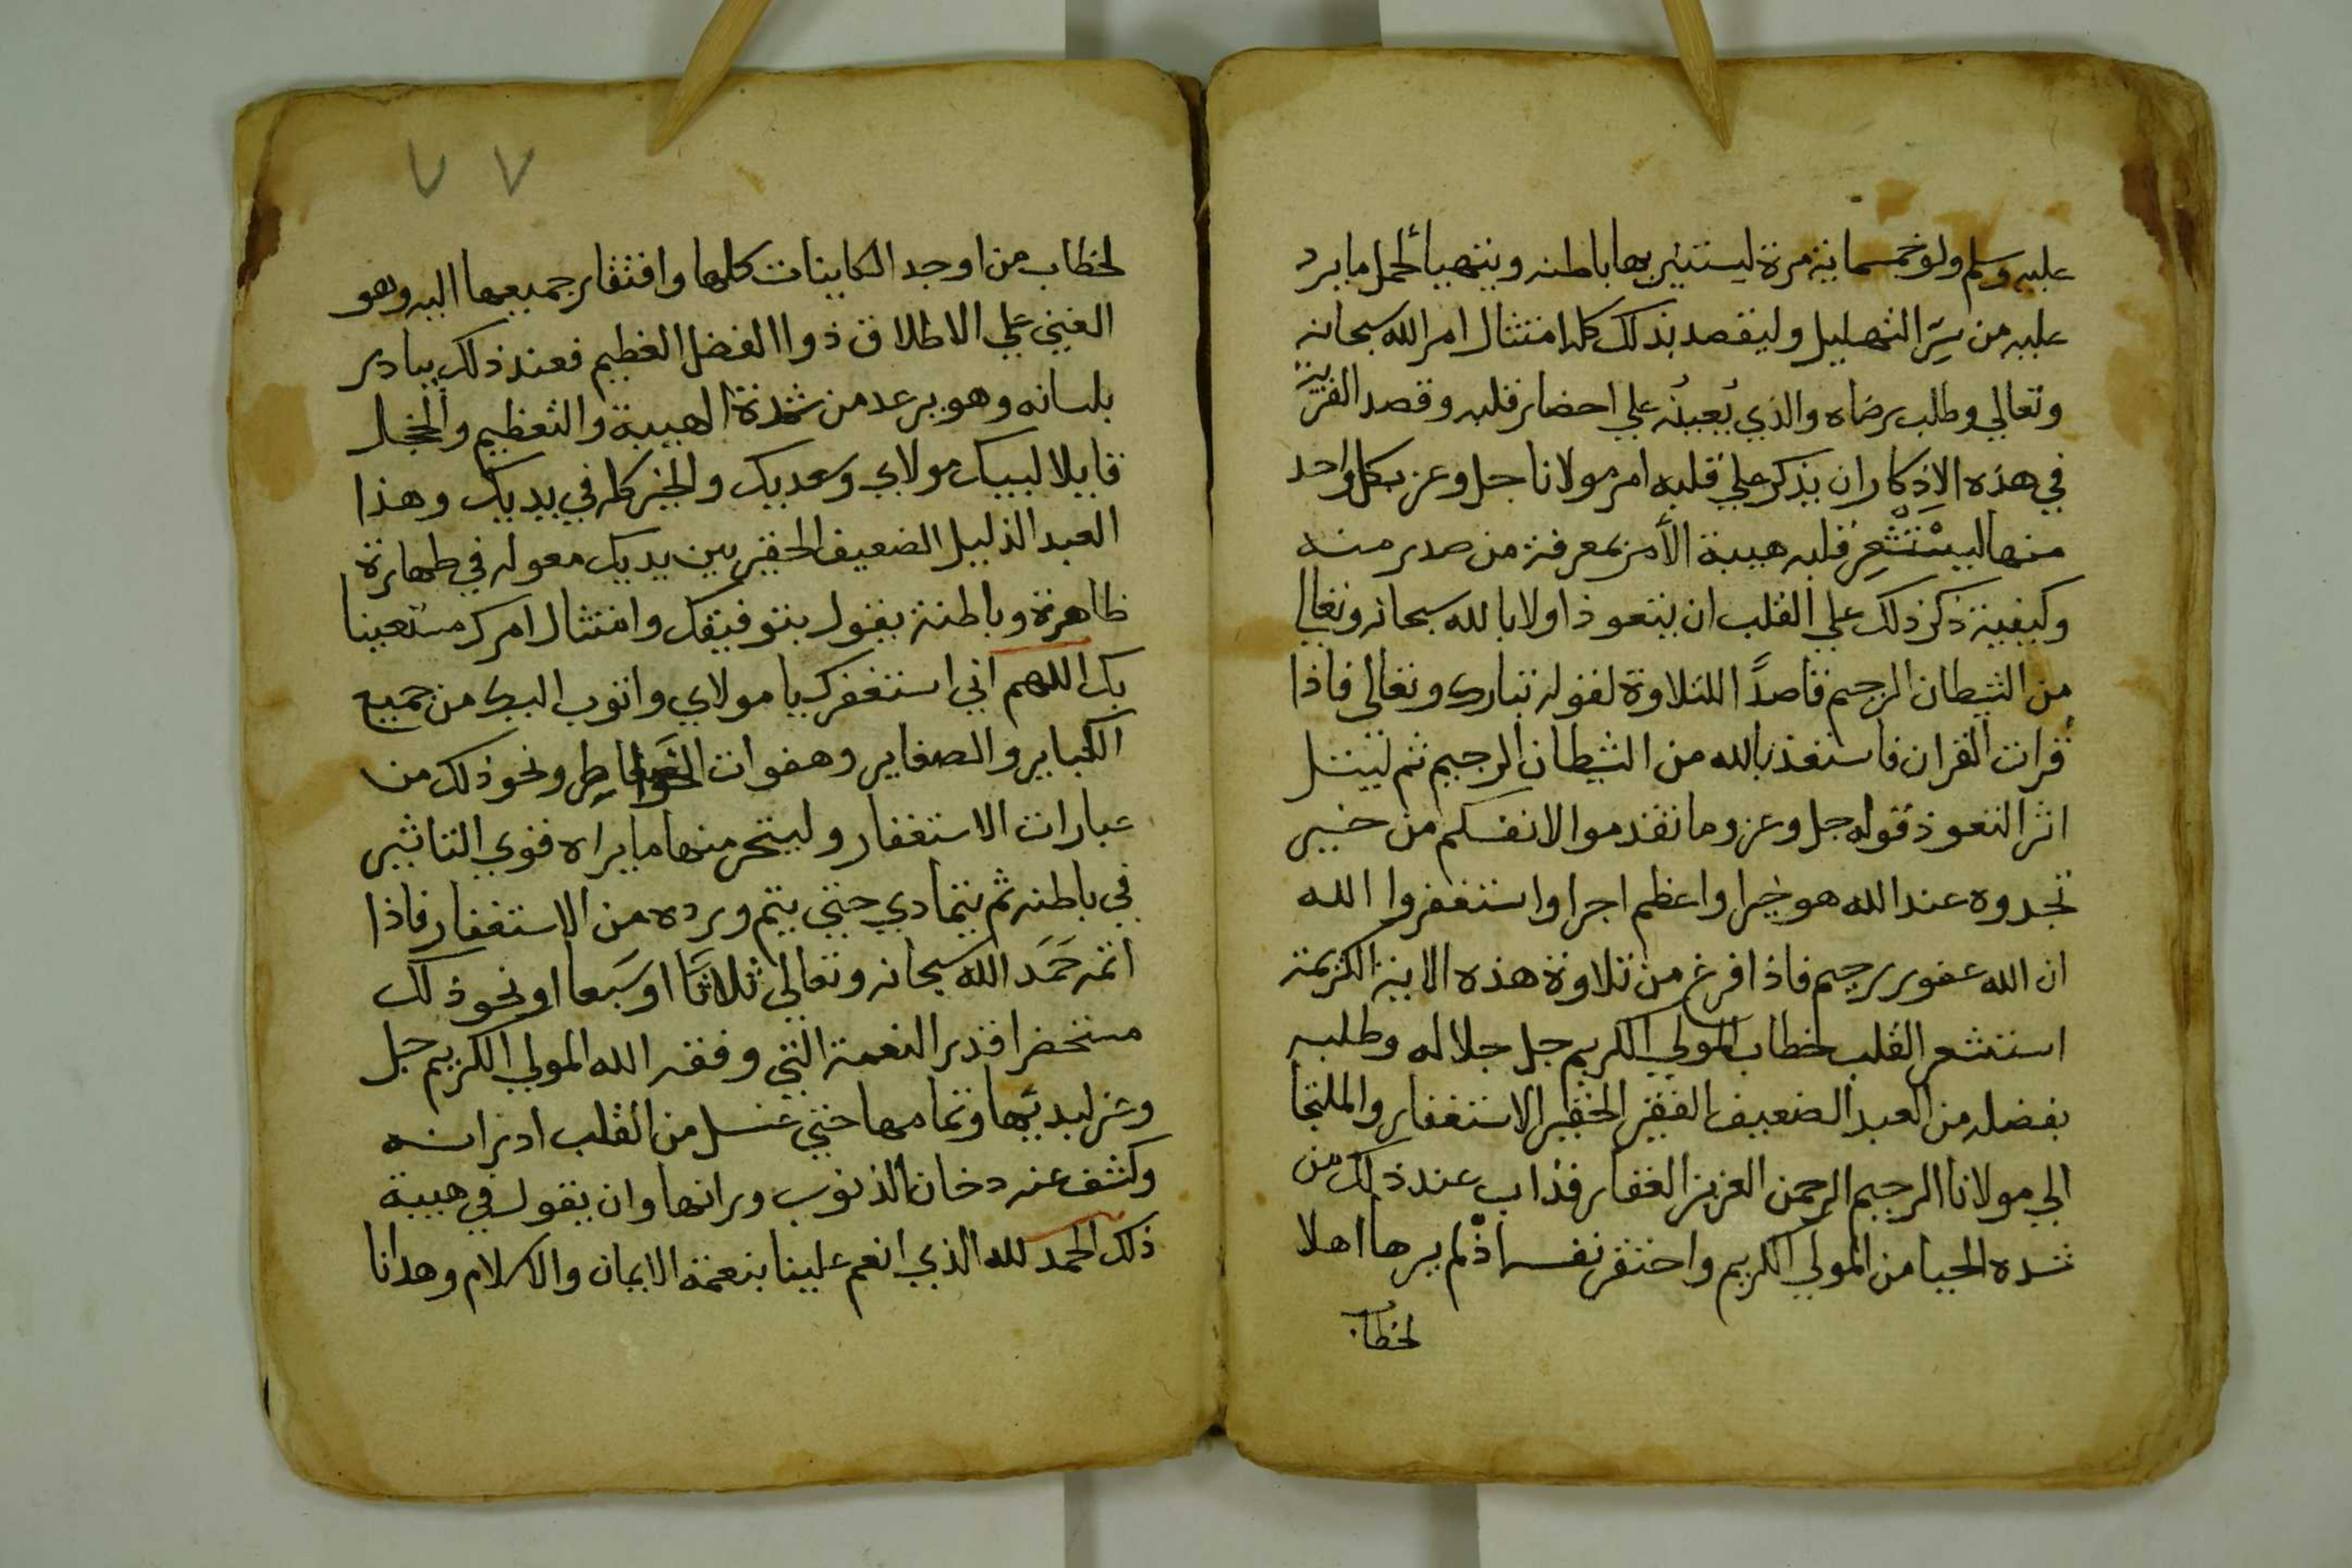 عليه وسلم ولو خمسماية مرة ليستنير بها باطنه ويتهيأ لحمل ما يرد
عليه من سر التهليل وليقصد بذلك كله امتثال امر الله سبحانه
وتعالي وطلب رضاه والذي يُعينُه علي احضار قلبه وقصد القربة
في هذه الاذكار ان يذكر علي قلبه امر مولانا جل وعز بكل واحد
منها ليستشعر قلبه هيبة الأمر بمعرفة من صدر منه
وكيفية ذكر ذلك علي القلب ان يتعوذ اولا بالله سبحانه وتعالي
من الشيطان الرجيم قاصدًا التلاوة لقوله تبارك وتعالي فاذا
قرات القران فاستعذ بالله من الشيطان الرجيم ثم ليتل
اثر التعوذ قوله جل وعز وما تقدموا لانفسكم من خير
تجدوه عند الله هو خيرا واعظم اجرا واستغفروا الله
ان الله غفور رحيم فاذا فرغ من تلاوة هذه الاية الكريمة
استشعر القلب لخطاب المولي الكريم جل جلاله وطلبه
بفضله من العبد الضعيف الفقير الحقير الاستغفار والملتجا
الي مولانا الرحيم الرحمن العزيز الغفار فذاب عند ذلك من
شده الحيا من المولي الكريم واحتقر نفسه اذ لم يرها اهلا
لخطاب
٧ ٧
لخطاب من اوجد الكاينات كلها وافتقار جميعها اليه وهو
الغني علي الاطلاق ذوا الفضل العظيم فعند ذلك يبادر
بلسانه وهو يرعد من شدة الهيبة والتعظيم والخجل
قايلا لبيك مولاي وسعديك والخير كله في يديك وهذا
العبد الذليل الضعيف الحقير بين يديك معوله في طهارة
ظاهرة وباطنة يقول بتوفيقك وامتثال امرك مستعينا
بك اللهم اني استغفرك يا مولاي واتوب اليك من جميع
الكباير والصغاير وهفوات الخواطر ونحو ذلك من
عبارات الاستغفار وليتحر منها ما يراه قوي التاثير
في باطنه ثم يتمادي حتي يتم ورده من الاستغفار فاذا
اتمه حَمَدَ الله سبحانه وتعالي ثلاثًا او سَبعا او نحو ذلك
مستحضرا قدر النعمة التي وفقه الله المولي الكريم جل
وعز لبديها وتمامها حتي غسل من القلب ادرانه
وكشف عنه دخان الذنوب ورانها وان يقول في هيبة
ذلك الحمد لله الذي انعم علينا بنعمة الايمان والاسلام وهدانا